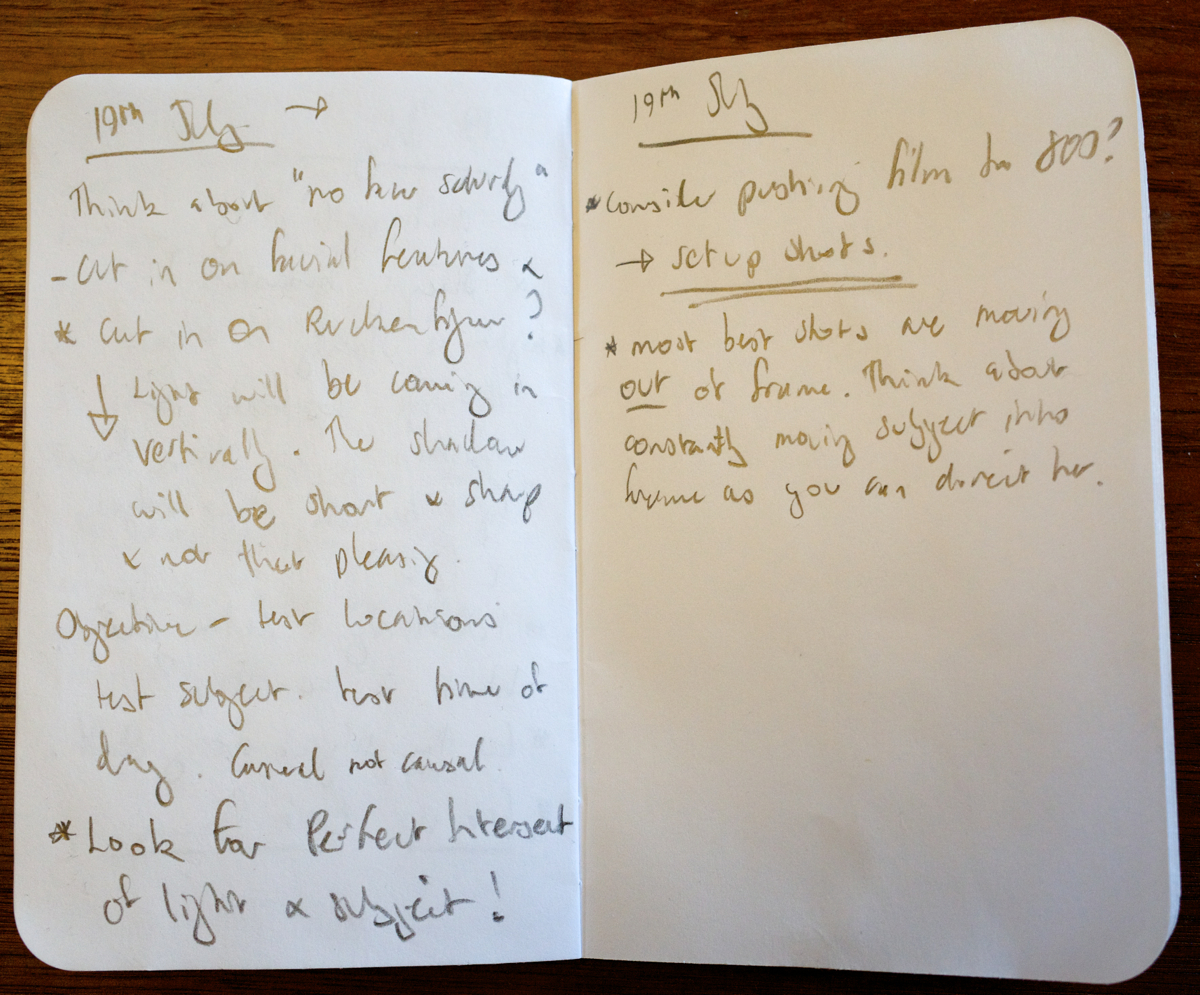 19th July →
Think about "no face
- Cut in on facial features &
* Cut in on Ruckenfigur ?
↓ Light will be coming in
vertically. The shadow
will be short & sharp
& not that pleasing.
Objective - test locations
test subject. test time of
day. Casual not causal.
* Look for Perfect Intersect
of light & subject!
19th July
* Consider pushing film to 800?
→ set up shots.
* most best shots are moving
out of frame. Think about
constantly moving subject into
frame as you can direct her.